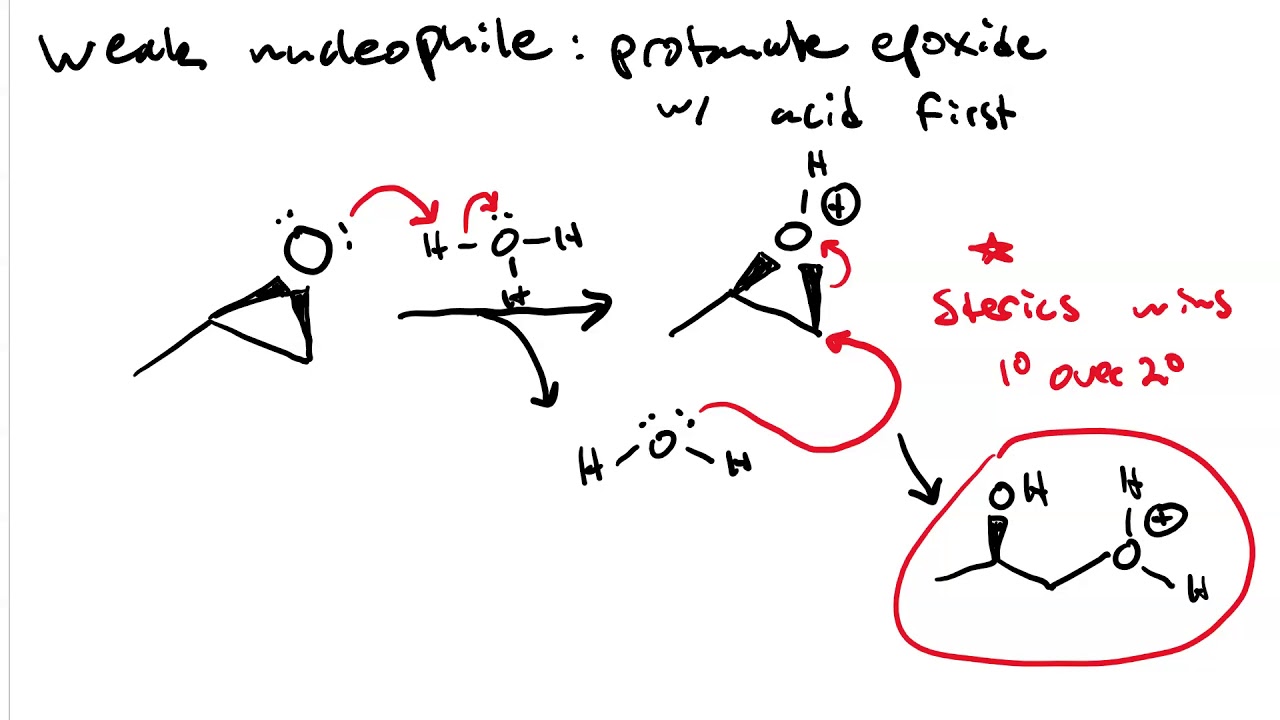 Weak nucleophile: protonate epoxide
w/ acid first
H
O +
O: H-O-H
H
★
Sterics wins
1° over 2°
H-O-H
OH H
O +
H